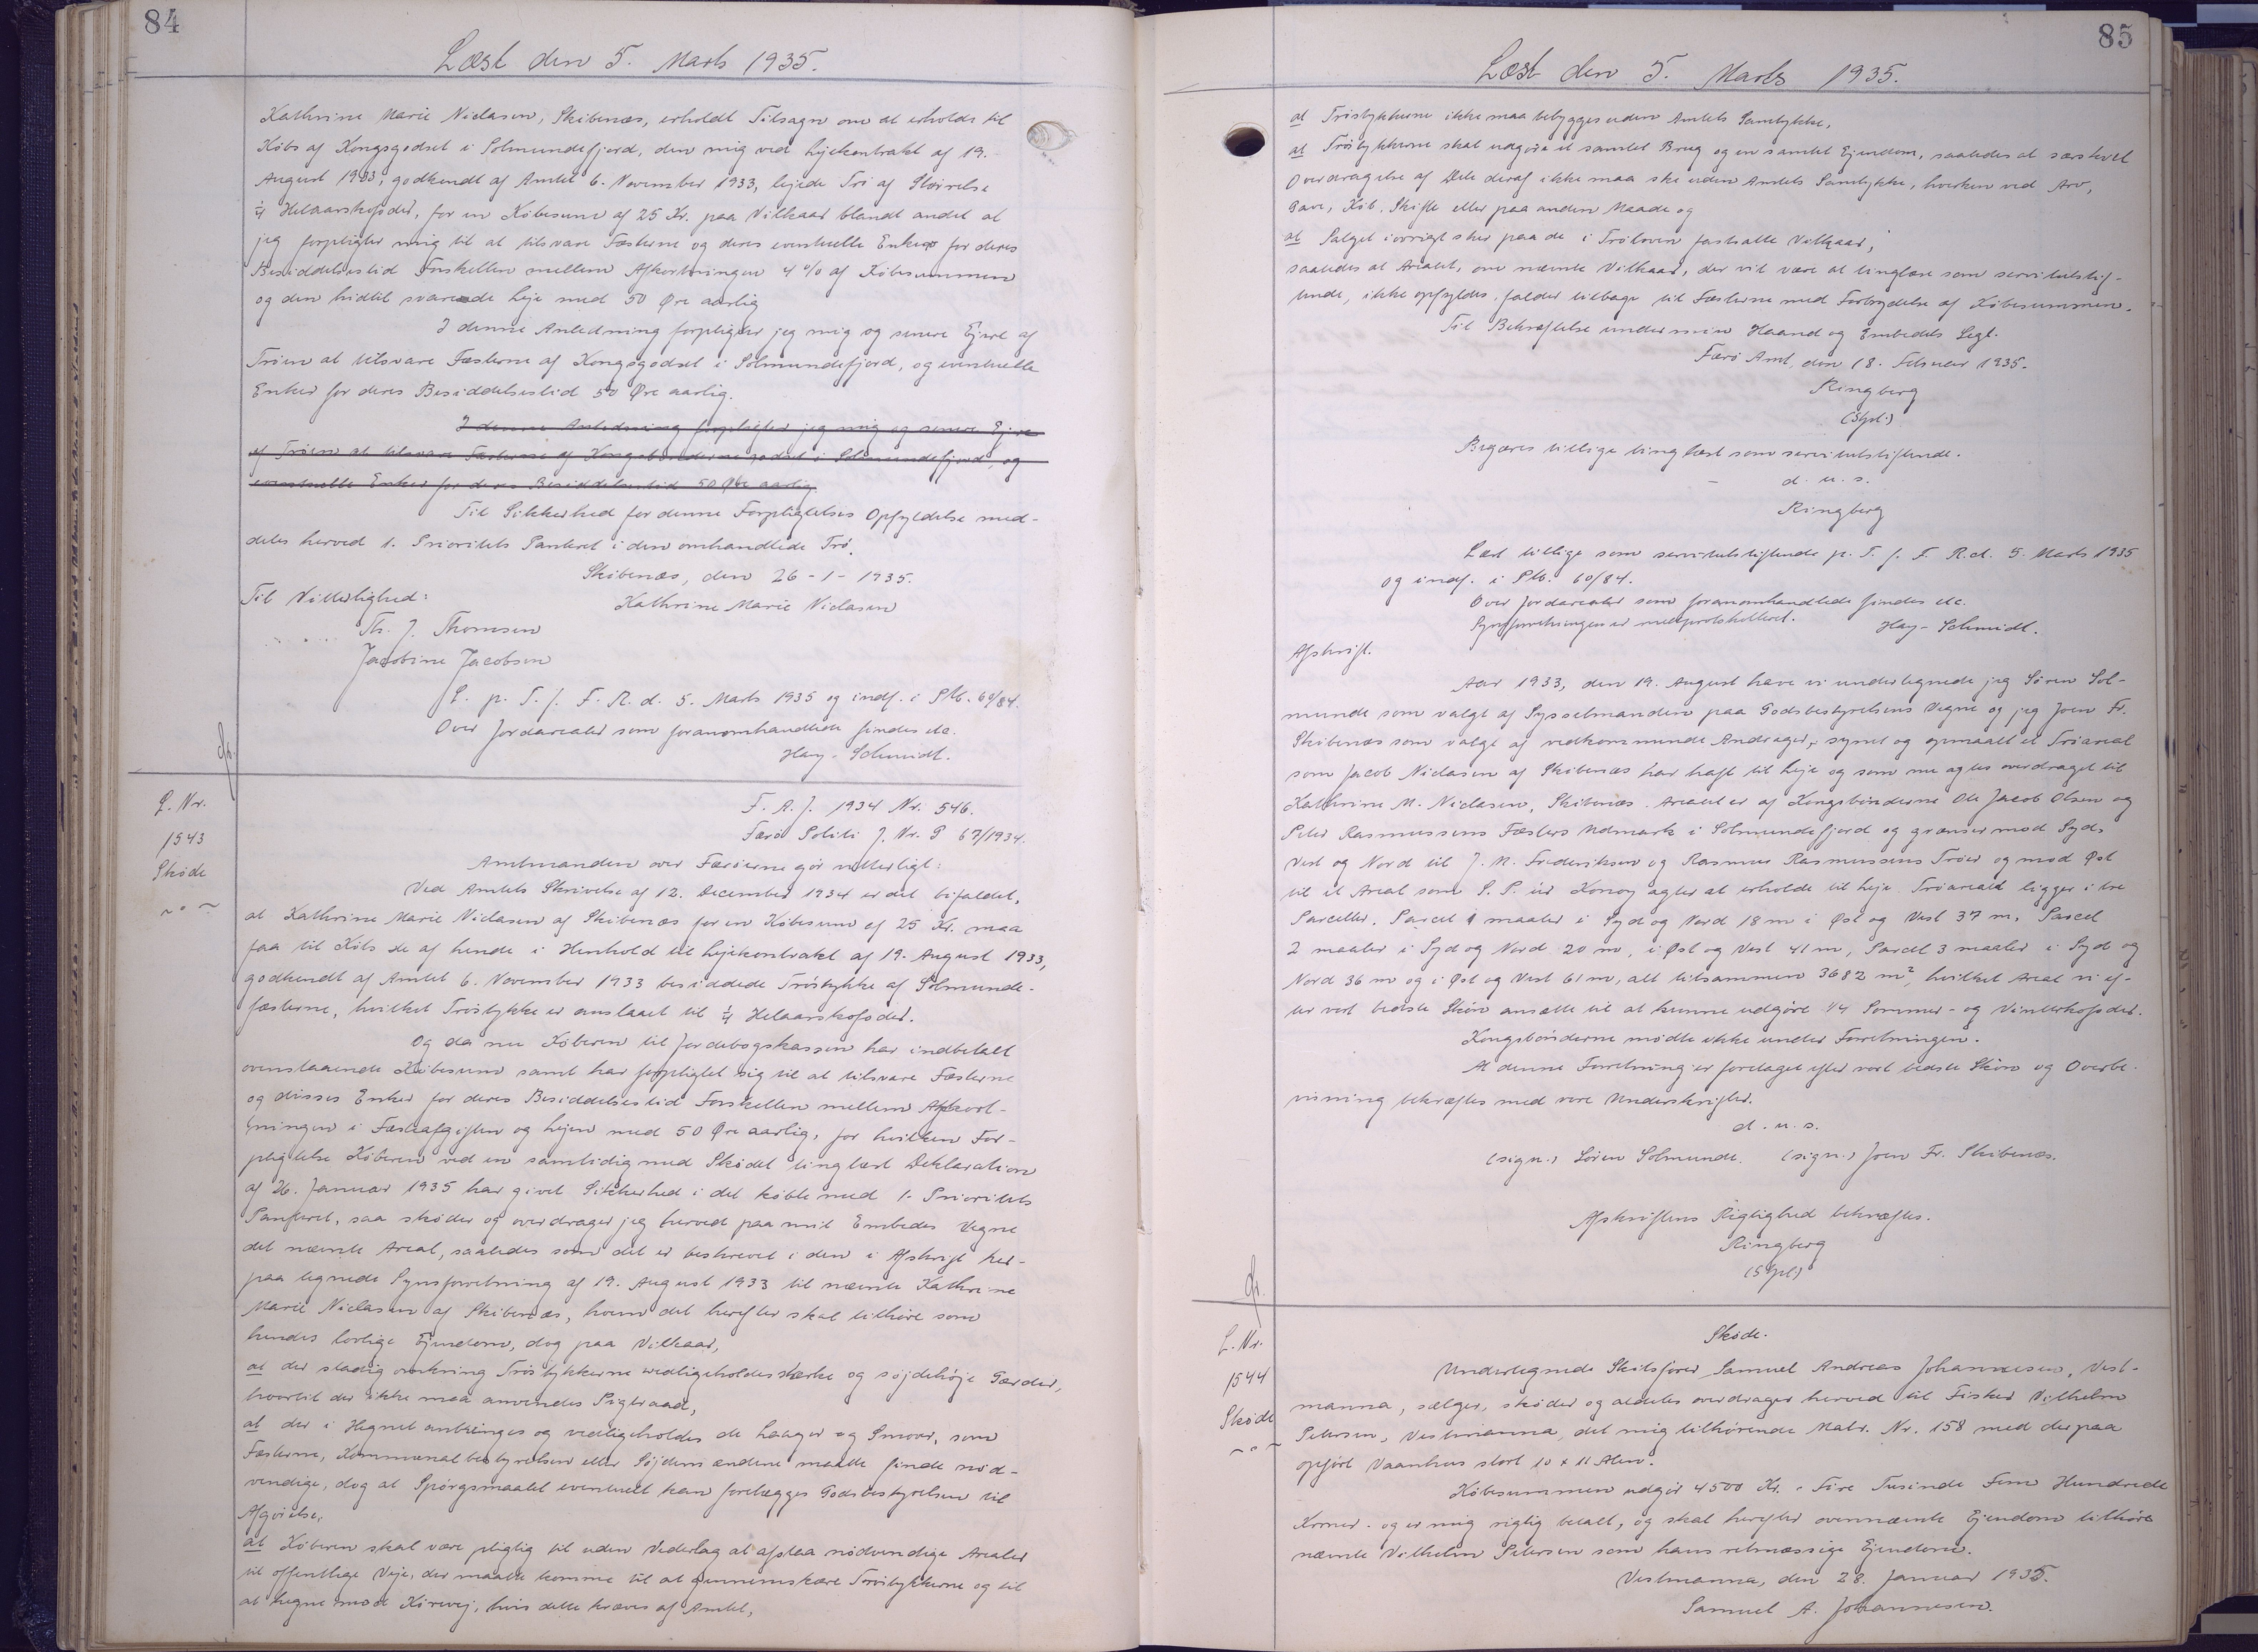 84
Læst den 5. Marts 1935.
Kathrine Marie Niclasen, Skibenæs, erholdt Tilsagn om at erholde til
Købs af Kongsgodset i Solmundefjord, den mig ved Lejekontrakt af 19.
August 1933, godkendt af Amtet 6. November 1933, lejede Trö af Størrelse
1/4 Helaarskofoder, for en Købesum af 25 Kr. paa Vilkaar blandt andet at
jeg forpligter mig til at tilsvare Fæsterne og deres eventuelle Enker for deres
Besiddelsestid Forskellen mellem Afkortningen 4% af Købesummen
og den hidtil svarede Leje med 50 Øre aarlig
I denne Anledning forpligter jeg mig og senere Ejere af
Tröen at tilsvare Fæsterne af Kongsgodset i Solmundefjord, og eventuelle
Enker for deres Besiddelsestid 50 Øre aarlig.
I denne Anledning forpligter jeg mig og senere Ejere
af Tröen at tilsvare Fæsterne af Kongsbøndernegodset i Solmundefjord, og
eventuelle Enker for deres Besiddelsestid 50 Øre aarlig.
Til Sikkerhed for denne Forpligtelses Opfyldelse med-
deles herved 1. Prioritets Panteret i den omhandlede Trö.
Skibenæs, den 26-1-1935.
Til Vitterlighed: Kathrine Marie Niclasen
Th. J. Thomsen
Jacobine Jacobsen
L. p. T. f. F. R. d. 5. Marts 1935 og indf. i Ptb. 60/84.
Over Jordarealer som foranomhandlede findes etc.
Hay-Schmidt.
L. Nr.
1543
Skøde
F. A. J. 1934 Nr. 546.
Færö Politi J. Nr. P 67/1934.
Amtmanden over Færøerne gör vitterligt:
Ved Amtets Skrivelse af 12. December 1934 er det bifaldet,
at Kathrine Marie Niclasen af Skibenæs for en Købesum af 25 Kr. maa
faa til Købs de af hende i Henhold til Lejekontrakt af 19. August 1933,
godkendt af Amtet 6. November 1933 besiddede Tröstykke af Solmunde-
fæsterne, hvilket Tröstykke er anslaaet til 1/4 Helaarskofoder.
Og da nu Köberen til Jordebogskassen har indbetalt
ovenstaaende Købesum samt har forpligtet sig til at tilsvare Fæsterne
og disses Enker for deres Besiddelsestid Forskellen mellem Afkort-
ningen i Fæsteafgiften og Lejen med 50 Øre aarlig, for hvilken For-
pligtelse Köberen ved en samtidig med Skødet tinglæst Deklaration
af 26. Januar 1935 har givet Sikkerhed i det købte med 1. Prioritets
Panteret, saa skøder og overdrager jeg herved paa mit Embedes Vegne
det nævnte Areal, saaledes som det er beskrevet i den i Afskrift her-
paa tegnede Synsforretning af 19. August 1933 til nævnte Kathrine
Marie Niclasen af Skibenæs, hvem det herefter skal tilhøre som
hendes lovlige Ejendom, dog paa Vilkaar,
at der stadig omkring Tröstykkerne vedligeholdes stærke og søjdehøje Gærder,
hvortil der ikke maa anvendes Pigtraad,
at der i Hegnet anbringes og vedligeholdes de Laager og Smoer, som
Fæsterne, Kommunalbestyrelsen eller Söjdemændene maatte finde nød-
vendige, dog at Spørgsmaalet eventuelt kan forelægges Godsbestyrelsen til
Afgørelse,
at Köberen skal være pligtig til uden Vederlag at afstaa nødvendige Arealer
til offentlige Veje, der maatte komme til at gennemskære Tröstykkerne og til
at hegne mod Kørevej, hvis dette kræves af Amtet,
85
Læst den 5. Marts 1935.
at Tröstykkerne ikke maa bebygges uden Amtets Samtykke,
at Tröstykkerne skal udgøre et samlet Brug og en samlet Ejendom, saaledes at særskilt
Overdragelse af Dele deraf ikke maa ske uden Amtets Samtykke, hverken ved Arv,
Gave, Køb, Skifte eller paa anden Maade og
at Salget iøvrigt sker paa de i Tröloven fastsatte Vilkaar,
saaledes at Arealet, om nævnte Vilkaar, der vil være at tinglæse som servitutstif-
tende, ikke opfyldes, falder tilbage til Fæsterne med Fortrydelse af Købesummen.
Til Bekræftelse under min Haand og Embedets Segl.
Færö Amt, den 18. Februar 1935.
Ringberg
(Sgl.)
Begæres tillige tinglæst som servitutstiftende.
d. u. s.
Ringberg
Læst tillige som servitutstiftende p. T. f. F. R. d. 5. Marts 1935
og indf. i Ptb. 60/84.
Over Jordarealer som foranomhandlede findes etc.
Synsforretningen er medprotokolleret. Hay-Schmidt.
Afskrift.
Aar 1933, den 19. August have vi undertegnede jeg Søren Sol-
munde som valgt af Sysselmanden paa Godsbestyrelsens Vegne og jeg Joen Fr.
Skibenæs som valgt af vedkommende Andrager, synet og opmaalt et Tröareal
som Jacob Niclasen af Skibenæs har haft til Leje og som nu agtes overdraget til
Kathrine M. Niclasen, Skibenæs. Arealet er af Kongsbönderne Ole Jacob Olsen og
Peter Rasmussens Fæsters Udmark i Solmundefjord og grænser mod Syd,
Vest og Nord til J. M. Frederiksen og Rasmus Rasmussens Tröer og mod Øst
til et Areal som S. P. úr Konoy agter at erholde til Leje. Tröarealet ligger i tre
Parceller. Parcel 1 maaler i Syd og Nord 18 m i Øst og Vest 37 m, Parcel
2 maaler i Syd og Nord 20 m, i Øst og Vest 41 m, Parcel 3 maaler i Syd og
Nord 36 m og i Øst og Vest 61 m, alt tilsammen 3682 m², hvilket Areal vi ef-
ter vort bedste Skøn ansætte til at kunne udgøre 1/4 Sommer- og Vinterkofoder.
Kongsbönderne mødte ikke under Forretningen.
At denne Forretning er foretaget efter vort bedste Skøn og Overbe-
visning bekræftes med vore Underskrifter.
d. u. s.
(sign.) Søren Solmunde. (sign.) Joen Fr. Skibenæs.
Afskriftens Rigtighed bekræftes.
Ringberg
(Sgl.)
L. Nr.
1544
Skøde
Skøde.
Undertegnede Skibsfører Samuel Andreas Johannesen, Vest-
manna, sælger, skøder og aldeles overdrager herved til Fisker Vilhelm
Petersen, Vestmanna, det mig tilhørende Matr. Nr. 158 med derpaa
opført Vaanhus stort 10 x 11 Alen.
Købesummen udgør 4500 Kr. - Fire Tusinde Fem Hundrede
Kroner - og er mig rigtig betalt, og skal herefter ovennævnte Ejendom tilhøre
nævnte Vilhelm Petersen som hans retmæssige Ejendom.
Vestmanna, den 28. Januar 1935.
Samuel A. Johannesen.